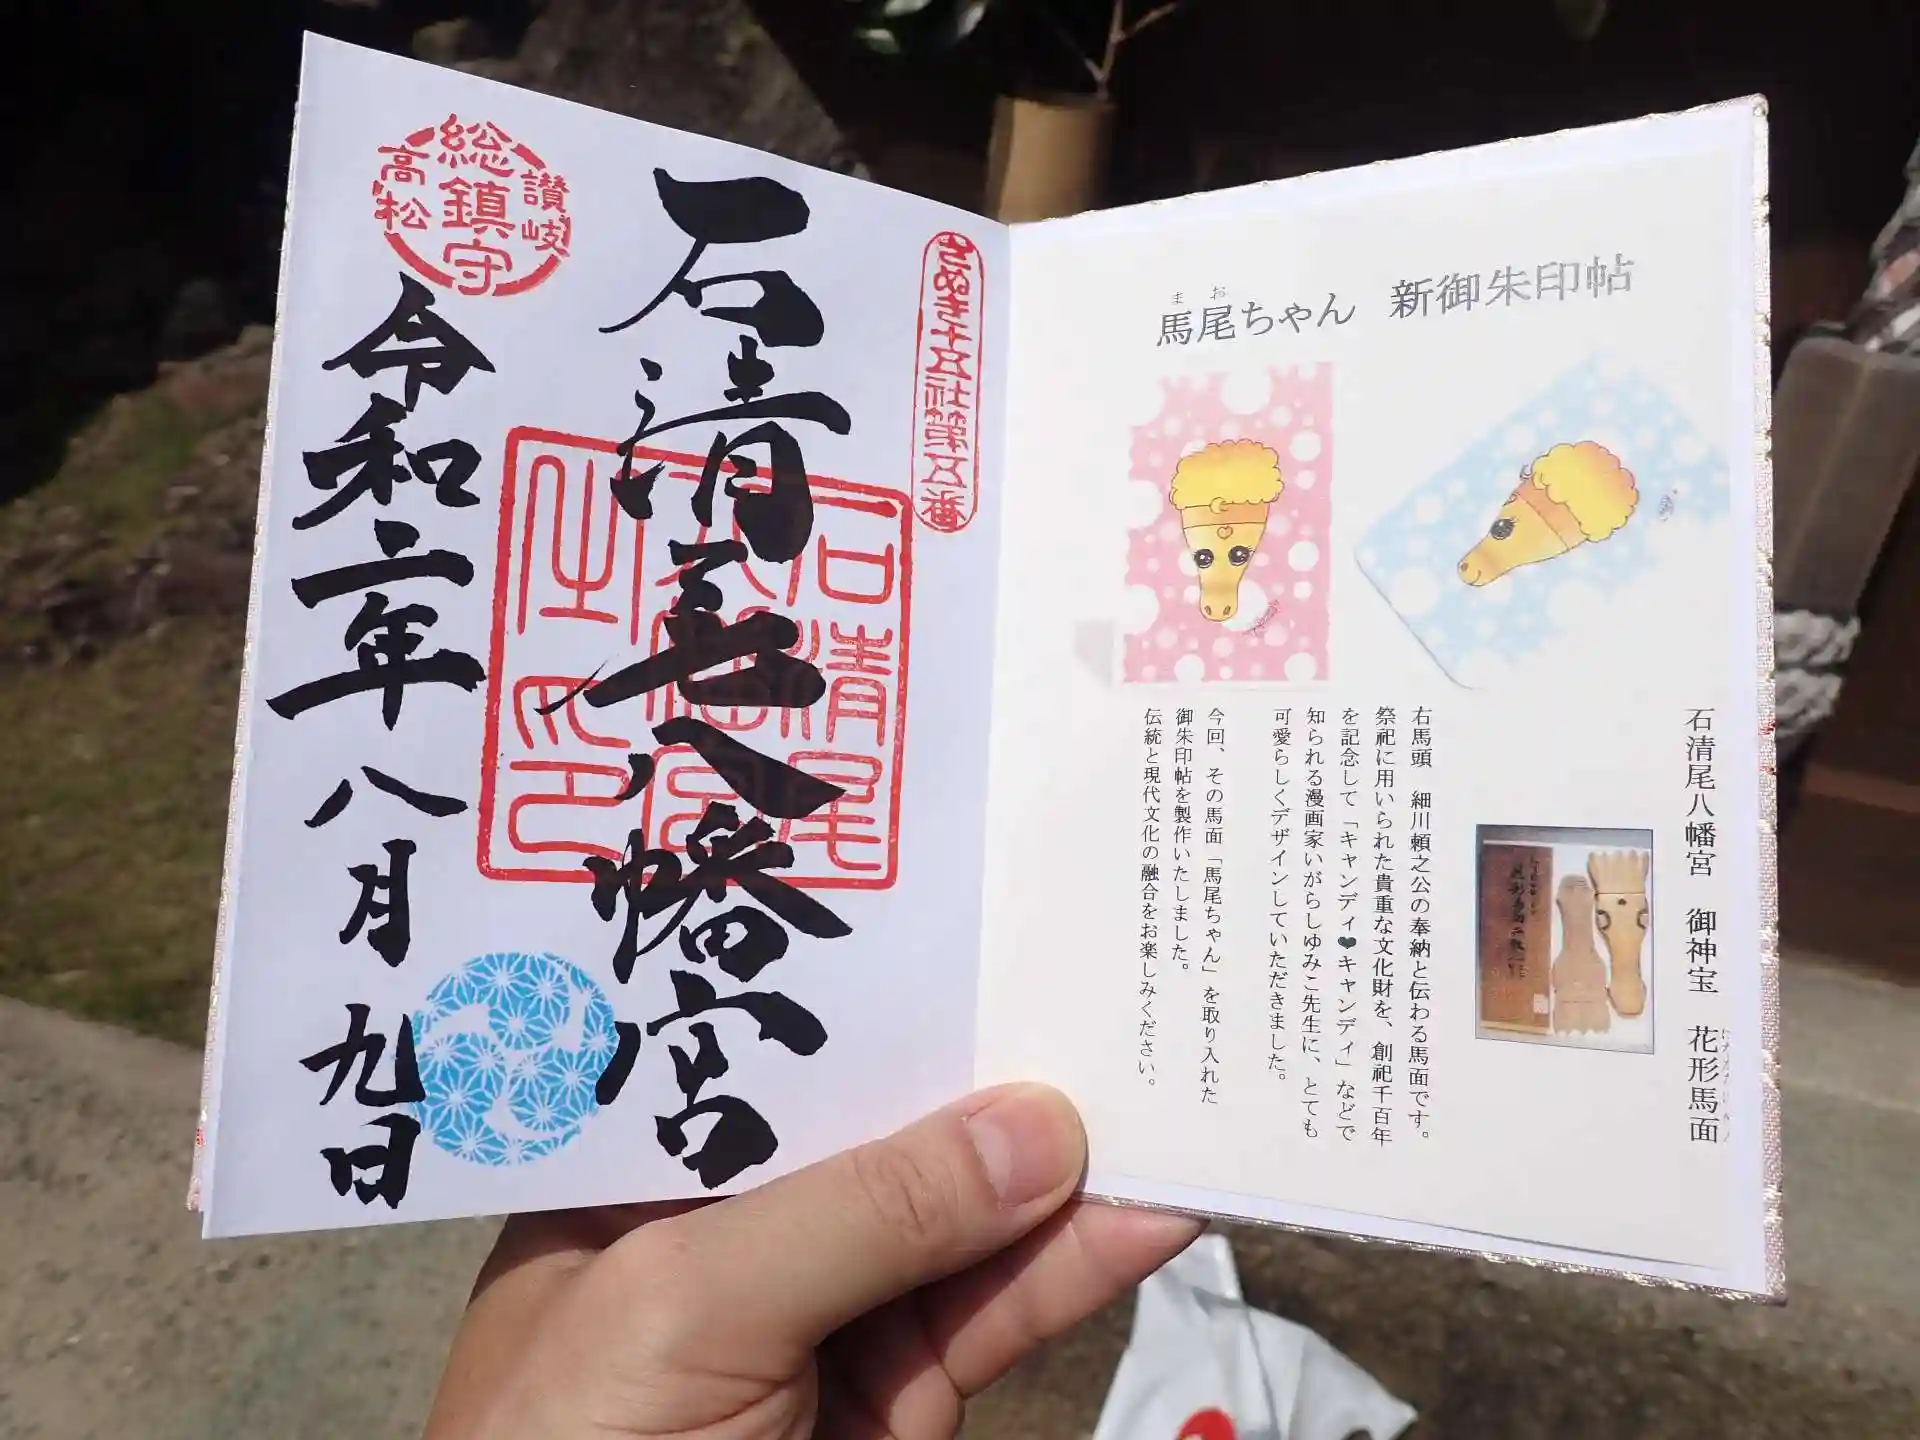 馬尾ちゃん 新御朱印帖
まお
石清尾八幡宮 御神宝 花形馬面
右馬頭 細川頼之公の奉納と伝わる馬面です。
祭祀に用いられた貴重な文化財を、創祀千百年
を記念して「キャンディ❤キャンディ」などで
知られる漫画家いがらしゆみこ先生に、とても
可愛らしくデザインしていただきました。
今回、その馬面「馬尾ちゃん」を取り入れた
御朱印帖を製作いたしました。
伝統と現代文化の融合をお楽しみください。
さぬき十五社第五番
石清尾八幡宮
石清尾
八幡宮
之印
讃岐
総鎮守
高松
令和二年八月九日